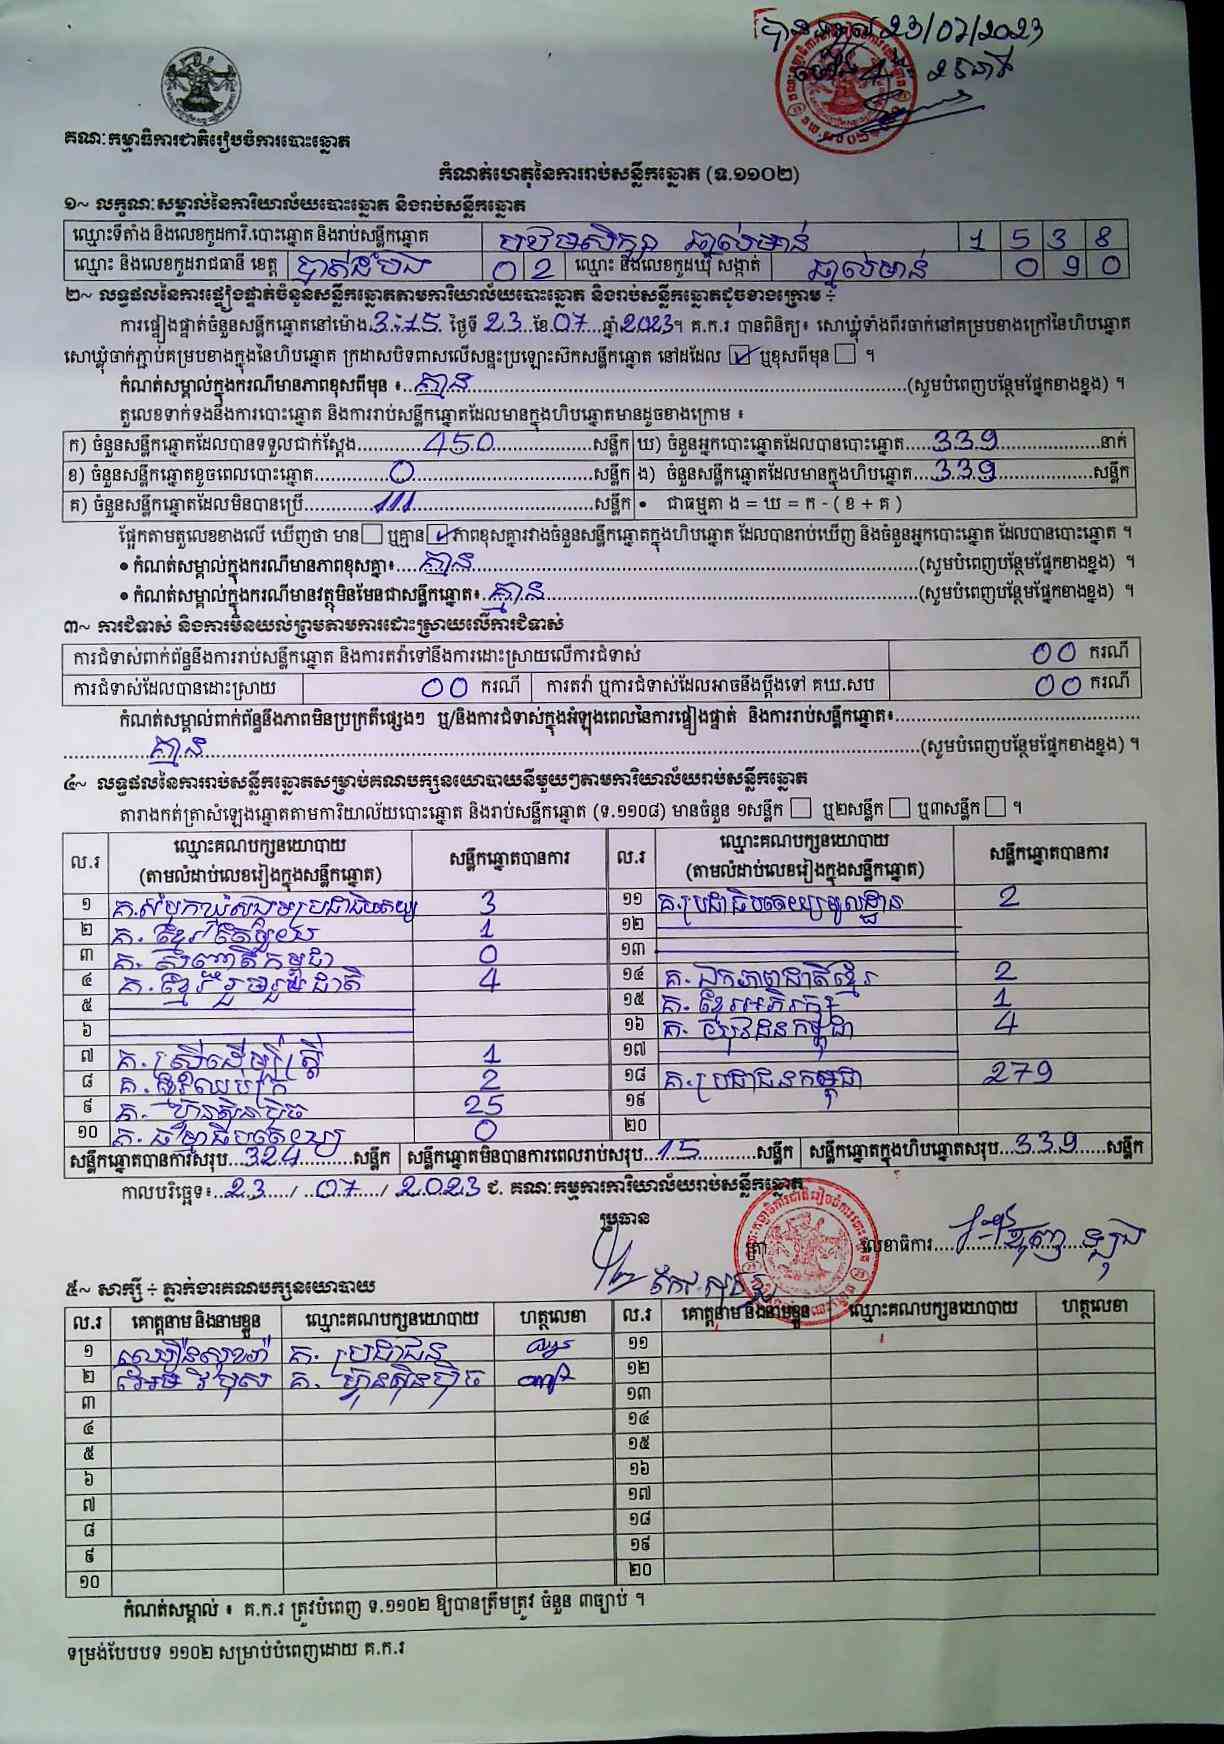 បានឃើញ 23/07/2023
គណៈកម្មាធិការជាតិរៀបចំការបោះឆ្នោត
កំណត់ហេតុនៃការរាប់សន្លឹកឆ្នោត (ទ.១១០២)
១~ លក្ខណៈសម្គាល់នៃការិយាល័យបោះឆ្នោត និងរាប់សន្លឹកឆ្នោត
ឈ្មោះទីតាំង និងលេខកូដការិ.បោះឆ្នោត និងរាប់សន្លឹកឆ្នោត បឋមសិក្សា 1 5 3 8
ឈ្មោះ និងលេខកូដរាជធានី ខេត្ត បាត់ដំបង 0 2 ឈ្មោះ និងលេខកូដឃុំ សង្កាត់ 0 9 0
២~ លទ្ធផលនៃការផ្ទៀងផ្ទាត់ចំនួនសន្លឹកឆ្នោតតាមការិយាល័យបោះឆ្នោត និងរាប់សន្លឹកឆ្នោតដូចខាងក្រោម ÷
ការផ្ទៀងផ្ទាត់ចំនួនសន្លឹកឆ្នោតនៅម៉ោង 3:15 ថ្ងៃទី 23 ខែ 07 ឆ្នាំ 2023។ គ.ក.រ បានពិនិត្យ៖ សោឃ្លុំទាំងពីរចាក់នៅគម្របខាងក្រៅនៃហិបឆ្នោត
សោឃ្លុំចាក់ភ្ជាប់គម្របខាងក្នុងនៃហិបឆ្នោត ក្រដាសបិទពាសលើសន្ទះប្រឡោះស៊កសន្លឹកឆ្នោត នៅដដែល ☑ ឬខុសពីមុន ☐ ។
កំណត់សម្គាល់ក្នុងករណីមានភាពខុសពីមុន ៖ គ្មាន (សូមបំពេញបន្ថែមផ្នែកខាងខ្នង) ។
តួលេខទាក់ទងនឹងការបោះឆ្នោត និងការរាប់សន្លឹកឆ្នោតដែលមានក្នុងហិបឆ្នោតមានដូចខាងក្រោម ៖
ក) ចំនួនសន្លឹកឆ្នោតដែលបានទទួលជាក់ស្ដែង 450 សន្លឹក ឃ) ចំនួនអ្នកបោះឆ្នោតដែលបានបោះឆ្នោត 339 នាក់
ខ) ចំនួនសន្លឹកឆ្នោតខូចពេលបោះឆ្នោត 0 សន្លឹក ង) ចំនួនសន្លឹកឆ្នោតដែលមានក្នុងហិបឆ្នោត 339 សន្លឹក
គ) ចំនួនសន្លឹកឆ្នោតដែលមិនបានប្រើ 111 សន្លឹក • ជាធម្មតា ង = ឃ = ក - ( ខ + គ )
ផ្អែកតាមតួលេខខាងលើ ឃើញថា មាន ☐ ឬគ្មាន ☑ ភាពខុសគ្នារវាងចំនួនសន្លឹកឆ្នោតក្នុងហិបឆ្នោត ដែលបានរាប់ឃើញ និងចំនួនអ្នកបោះឆ្នោត ដែលបានបោះឆ្នោត ។
• កំណត់សម្គាល់ក្នុងករណីមានភាពខុសគ្នា៖ គ្មាន (សូមបំពេញបន្ថែមផ្នែកខាងខ្នង) ។
• កំណត់សម្គាល់ក្នុងករណីមានវត្ថុមិនមែនជាសន្លឹកឆ្នោត៖ គ្មាន (សូមបំពេញបន្ថែមផ្នែកខាងខ្នង) ។
៣~ ការជំទាស់ និងការមិនយល់ព្រមតាមការដោះស្រាយលើការជំទាស់
ការជំទាស់ពាក់ព័ន្ធនឹងការរាប់សន្លឹកឆ្នោត និងការតវ៉ាទៅនឹងការដោះស្រាយលើការជំទាស់ 00 ករណី
ការជំទាស់ដែលបានដោះស្រាយ 00 ករណី ការតវ៉ា ឬការជំទាស់ដែលអាចនឹងប្ដឹងទៅ គឃ.សប 00 ករណី
កំណត់សម្គាល់ពាក់ព័ន្ធនឹងភាពមិនប្រក្រតីផ្សេងៗ ឬ/និងការជំទាស់ក្នុងអំឡុងពេលនៃការផ្ទៀងផ្ទាត់ និងការរាប់សន្លឹកឆ្នោត៖
គ្មាន (សូមបំពេញបន្ថែមផ្នែកខាងខ្នង) ។
៤~ លទ្ធផលនៃការរាប់សន្លឹកឆ្នោតសម្រាប់គណបក្សនយោបាយនីមួយៗតាមការិយាល័យរាប់សន្លឹកឆ្នោត
តារាងកត់ត្រាសំឡេងឆ្នោតតាមការិយាល័យបោះឆ្នោត និងរាប់សន្លឹកឆ្នោត (ទ.១១០៨) មានចំនួន ១សន្លឹក ☐ ឬ២សន្លឹក ☐ ឬ៣សន្លឹក ☐ ។
ល.រ ឈ្មោះគណបក្សនយោបាយ (តាមលំដាប់លេខរៀងក្នុងសន្លឹកឆ្នោត) សន្លឹកឆ្នោតបានការ ល.រ ឈ្មោះគណបក្សនយោបាយ (តាមលំដាប់លេខរៀងក្នុងសន្លឹកឆ្នោត) សន្លឹកឆ្នោតបានការ
១ គ.សំបុកឃ្មុំសង្គមប្រជាធិបតេយ្យ 3 ១១ គ.ប្រជាធិបតេយ្យមូលដ្ឋាន 2
២ គ. ខ្មែរតែមួយ 1 ១២
៣ គ. សញ្ជាតិកម្ពុជា 0 ១៣
៤ គ. ខ្មែររួបរួមជាតិ 4 ១៤ គ. ឯកភាពជាតិខ្មែរ 2
៥ ១៥ គ. ខ្មែរអភិរក្ស 1
៦ ១៦ គ. យុវជនកម្ពុជា 4
៧ គ. ស្រីដើម្បីស្រី 1 ១៧
៨ គ. 2 ១៨ គ.ប្រជាជនកម្ពុជា 279
៩ គ. ហ៊្វុនស៊ិនប៉ិច 25 ១៩
១០ គ. ធម្មាធិបតេយ្យ 0 ២០
សន្លឹកឆ្នោតបានការសរុប 324 សន្លឹក សន្លឹកឆ្នោតមិនបានការពេលរាប់សរុប 15 សន្លឹក សន្លឹកឆ្នោតក្នុងហិបឆ្នោតសរុប 339 សន្លឹក
កាលបរិច្ឆេទ៖ 23 / 07 / 2023 ជ. គណៈកម្មការការិយាល័យរាប់សន្លឹកឆ្នោត
ប្រធាន
ត្រា លេខាធិការ
៥~ សាក្សី ÷ ភ្នាក់ងារគណបក្សនយោបាយ
ល.រ គោត្តនាម និងនាមខ្លួន ឈ្មោះគណបក្សនយោបាយ ហត្ថលេខា ល.រ គោត្តនាម និងនាមខ្លួន ឈ្មោះគណបក្សនយោបាយ ហត្ថលេខា
១ គ. ប្រជាជន ១១
២ គ. ហ៊្វុនស៊ិនប៉ិច ១២
៣ ១៣
៤ ១៤
៥ ១៥
៦ ១៦
៧ ១៧
៨ ១៨
៩ ១៩
១០ ២០
កំណត់សម្គាល់ ៖ គ.ក.រ ត្រូវបំពេញ ទ.១១០២ ឱ្យបានត្រឹមត្រូវ ចំនួន ៣ច្បាប់ ។
ទម្រង់បែបបទ ១១០២ សម្រាប់បំពេញដោយ គ.ក.រ